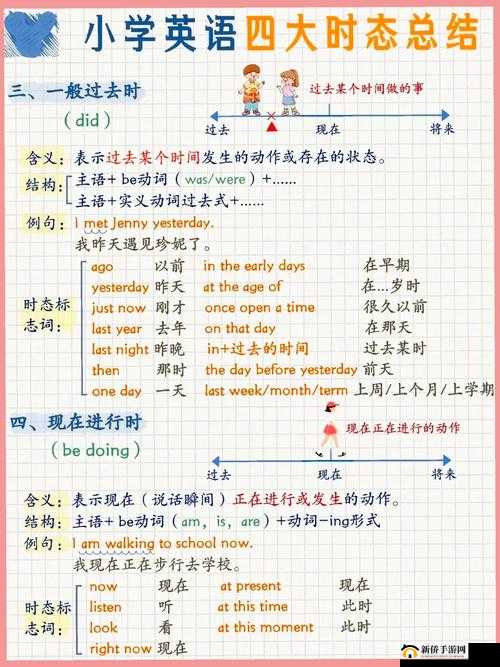 小学英语四大时态总结
三、一般过去时
(did)
过去某个时间做的事
过去 现在 将来
含义：表示过去某个时间发生的动作或存在的状态。
结构：主语+ be动词（was/were）+......
主语+实义动词过去式+......
例句：I met Jenny yesterday.
我昨天遇见珍妮了。
时态标志词：
ago 以前 in the early days 在早期
yesterday 昨天 at the age of 在...岁时
just now 刚才 once open a time 很久以前
last year 去年 on that day 在那天
last night 昨晚 in+过去的时间 过去某时
then 那时 the day before yesterday 前天
one day 一天 last week/month/term 上周/上个月/上学期
四、现在进行时
(be doing)
现在正在进行的动作
过去 现在 将来
含义：表示现在（说话瞬间）正在进行或发生的动作。
结构：主语+ be动词（am, is, are）+动词-ing形式
例句：I am walking to school now.
我现在正在步行去学校。
时态标志词：
now 现在 at present 现在
listen 听 at this time 此时
look 看 at this moment 此时
right now 现在
新侨手游网